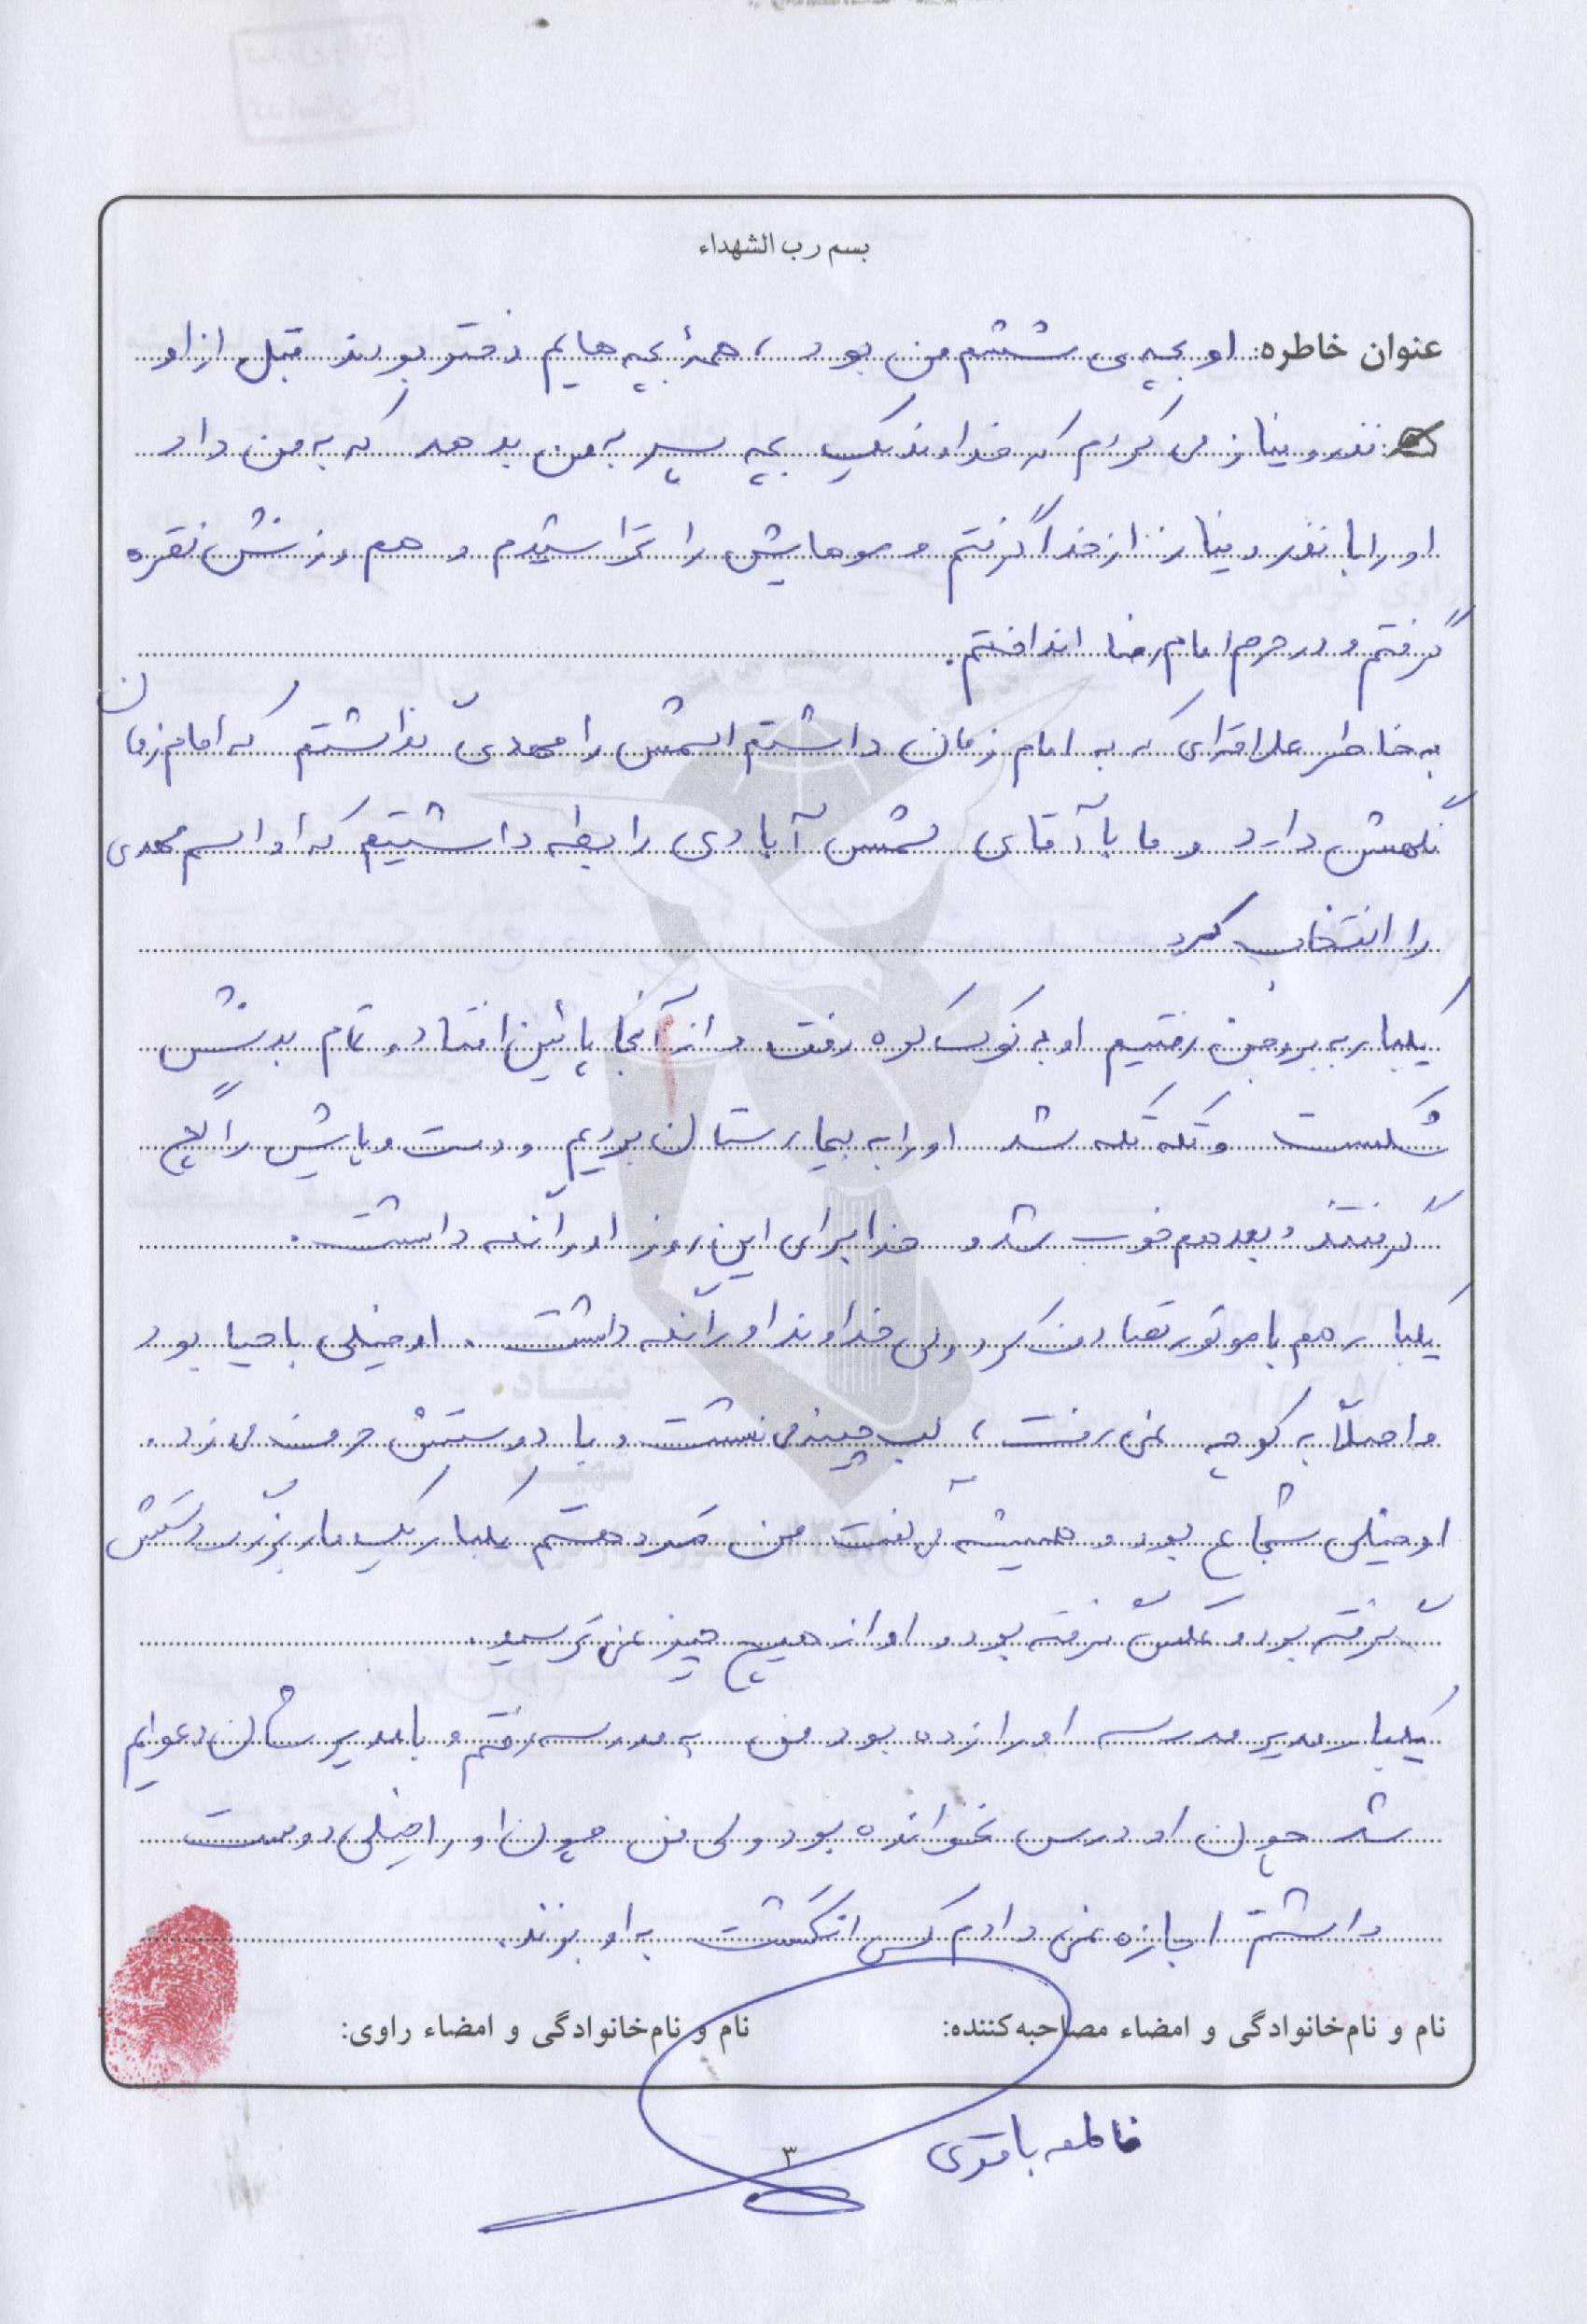 بسم رب الشهداء
عنوان خاطره: او بچه ی ششم من بود، همهٔ بچه هایم دختر بودند قبل از او
نذر و نیاز می کردم که خداوند یک بچه پسر به من بدهد که به من داد
او را با نذر و نیاز از خدا گرفتم و موهایش را تراشیدم و هم وزنش نقره
گرفتم و در حرم امام رضا انداختم.
به خاطر علاقه ای که به امام زمان داشتم اسمش را مهدی گذاشتم که امام زمان
نگهش دارد و ما با آقای شمس آبادی رابطه داشتیم که او اسم مهدی
را انتخاب کرد
یکبار به بروجن رفتیم او به نوک کوه رفت و از آنجا پائین افتاد و تمام بدنش
شکست و تکه تکه شد او را به بیمارستان بردیم و دست و پایش را گچ
گرفتند و بعد هم خوب شد و خدا برای این روز او را نگه داشت.
یکبار هم با موتور تصادف کرد ولی خداوند او را نگه داشت. او خیلی با حیا بود
و اصلاً به کوچه نمی رفت، لب چینه می نشست و با دوستش حرف می زد.
او خیلی شجاع بود و همیشه می گفت من مرد هستم یکبار یک مار بزرگ دستش
گرفته بود و عکس گرفته بود و او از هیچ چیز نمی ترسید.
یکبار مدیر مدرسه او را زده بود من به مدرسه رفتم و با مدیرشان دعوایم
شد چون او درس نخوانده بود ولی من چون او را خیلی دوست
داشتم اجازه نمی دادم کسی انگشت به او بزند.
نام و نام‌خانوادگی و امضاء مصاحبه‌کننده: نام و نام‌خانوادگی و امضاء راوی:
فاطمه باقری
۳